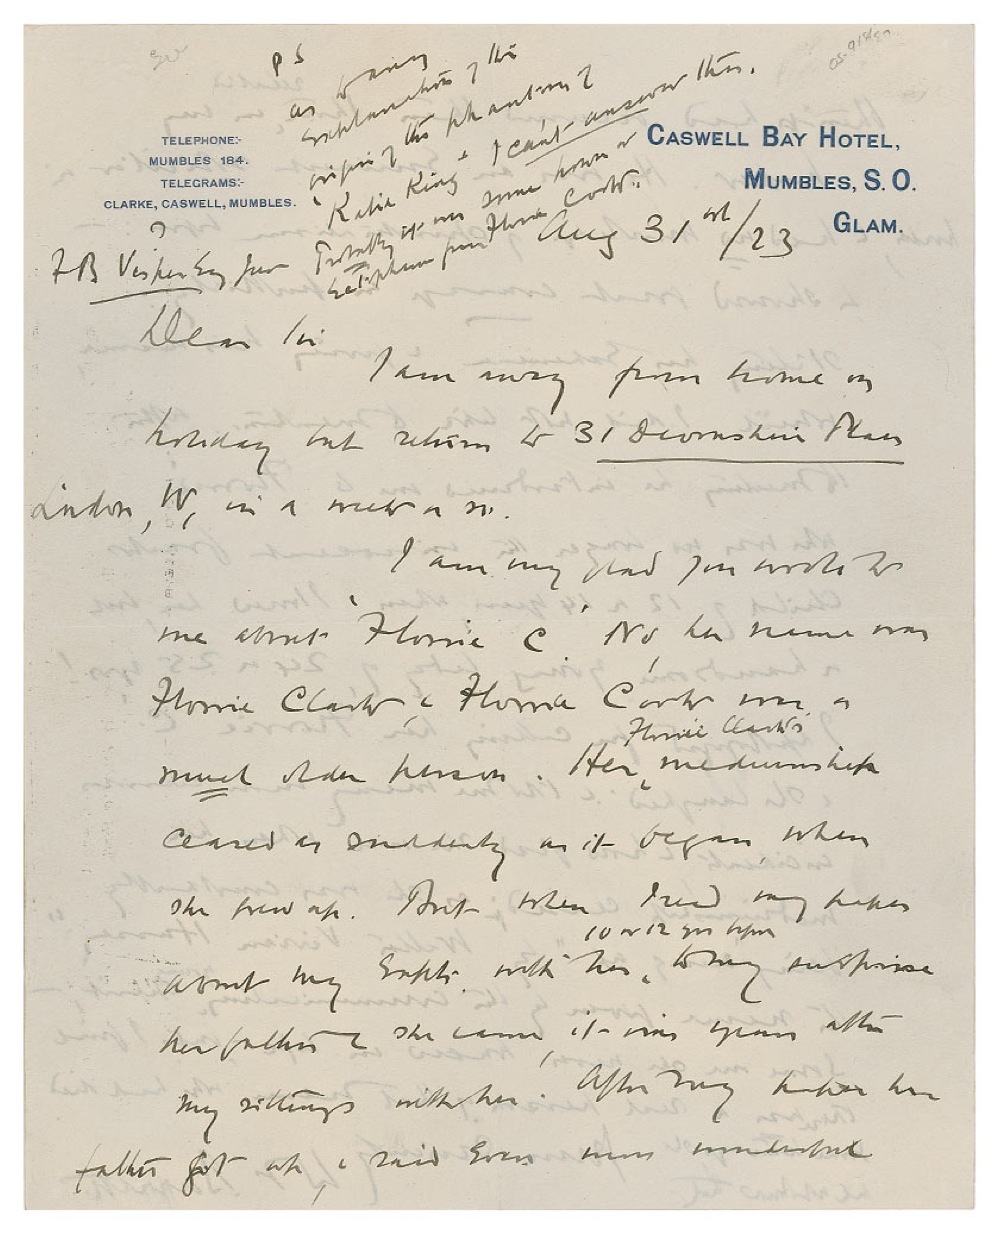 TELEPHONE:-
MUMBLES 184.
TELEGRAMS:-
CLARKE, CASWELL, MUMBLES.
CASWELL BAY HOTEL,
MUMBLES, S. O.
GLAM.
Aug 31st/23
PS
as to any
explanation of the
origin of the phantom of
"Katie King" I can't answer this.
Probably it was some form of
from Florrie Cook.
Dear Sir
I am away from home on
holiday but return to 31 Devonshire Place
London, W, in a week or so.
I am very glad you wrote to
me about "Florrie C". No, her name was
Florrie Clark & Florrie Cook was a
much older person. Her Florrie Clark's mediumship
ceased as suddenly as it began, when
she grew up. But when I read my paper
about my Expts. with her, 10 or 12 yrs before to my surprise
her father & she came, it was years after
my sittings with her. After my paper her
father got up, & said even more wonderful